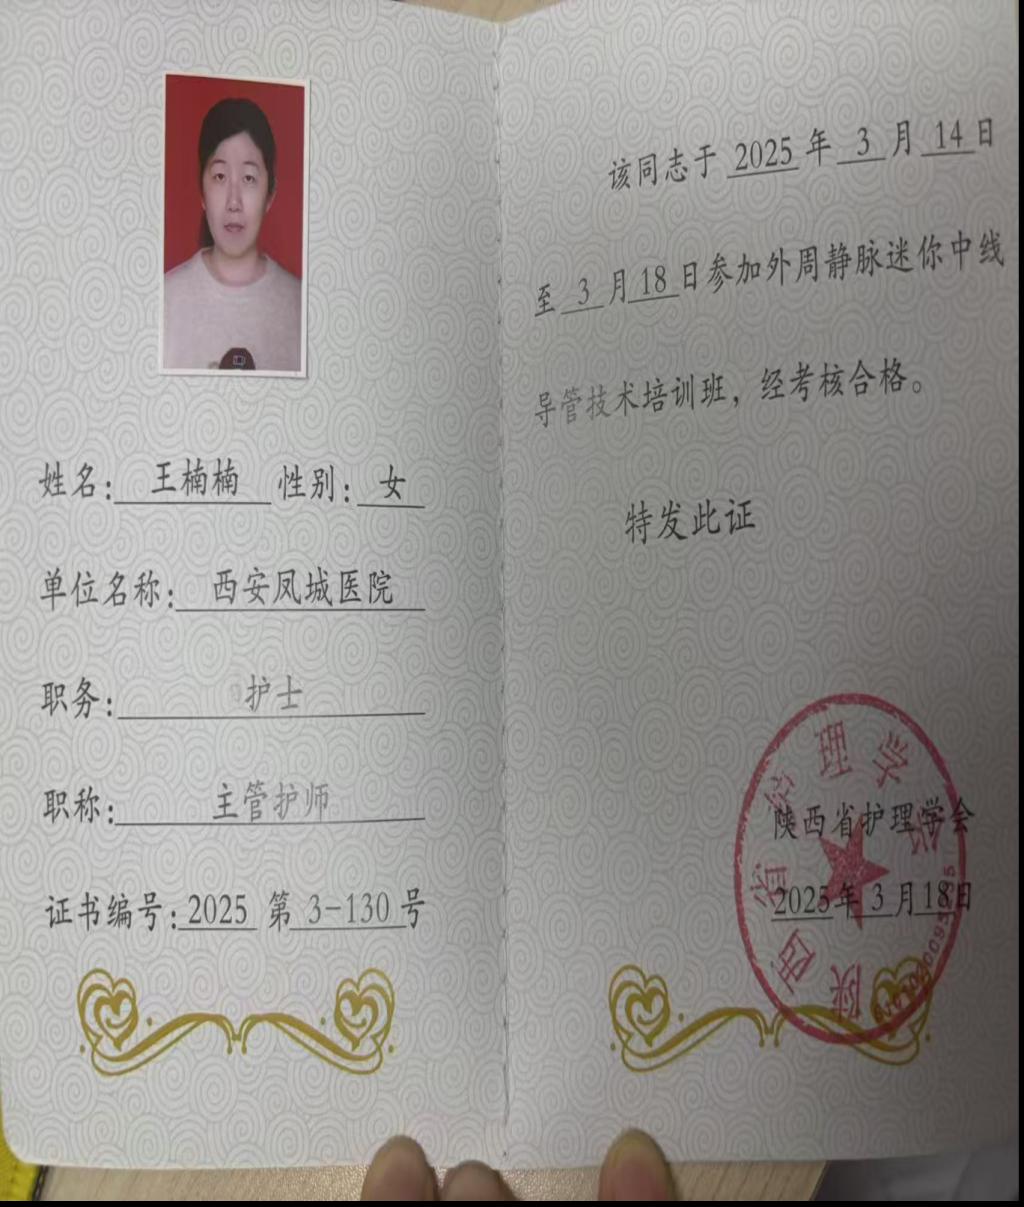 姓名：王楠楠 性别：女
单位名称：西安凤城医院
职务：护士
职称：主管护师
证书编号：2025 第 3-130 号
该同志于 2025 年 3 月 14 日
至 3 月 18 日参加外周静脉迷你中线
导管技术培训班，经考核合格。
特发此证
陕西省护理学会
2025年 3 月18日
陕西省护理学会